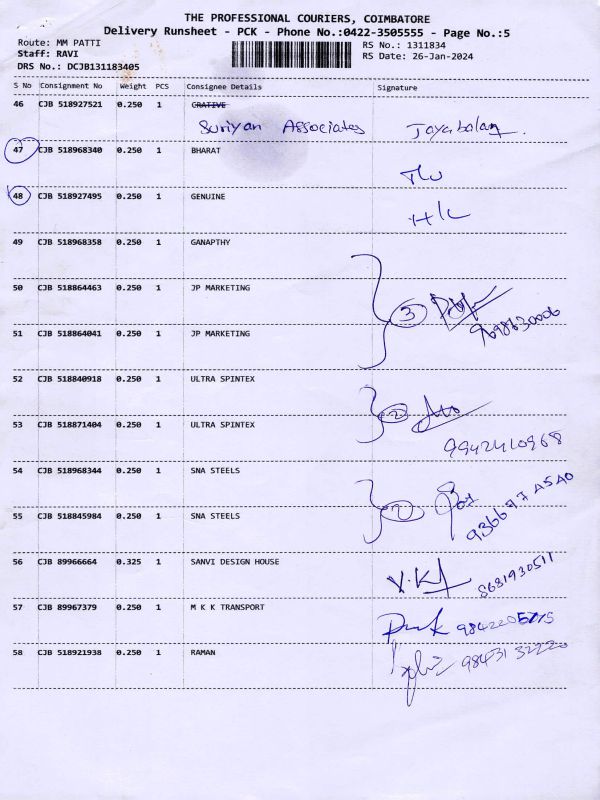 THE PROFESSIONAL COURIERS, COIMBATORE
Delivery Runsheet - PCK - Phone No.:0422-3505555 - Page No.:5
Route: MM PATTI
RS No.: 1311834
Staff: RAVI
RS Date: 26-Jan-2024
DRS No.: DCJB131183405
S No Consignment No Weight PCS Consignee Details Signature
46 CJB 518927521 0.250 1 CRATIVE
Suriyan Associates Jayabalan
47 CJB 518968340 0.250 1 BHARAT
48 CJB 518927495 0.250 1 GENUINE
49 CJB 518968358 0.250 1 GANAPTHY
50 CJB 518864463 0.250 1 JP MARKETING
3
51 CJB 518864041 0.250 1 JP MARKETING
52 CJB 518840918 0.250 1 ULTRA SPINTEX
2
53 CJB 518871404 0.250 1 ULTRA SPINTEX
9942410968
54 CJB 518968344 0.250 1 SNA STEELS
55 CJB 518845984 0.250 1 SNA STEELS
56 CJB 89966664 0.325 1 SANVI DESIGN HOUSE
8681930511
57 CJB 89967379 0.250 1 M K K TRANSPORT
58 CJB 518921938 0.250 1 RAMAN
98431 32220